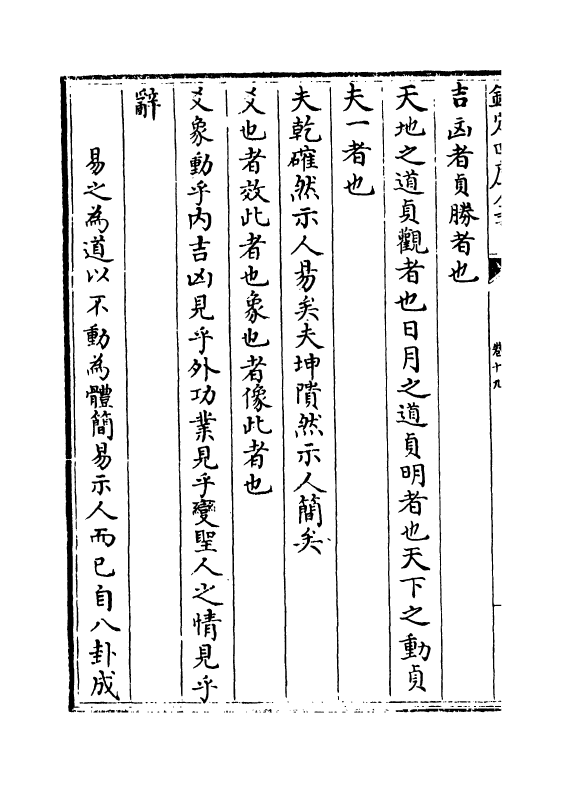 欽定四庫全書
卷十九
吉凶者貞勝者也
天地之道貞觀者也日月之道貞明者也天下之動貞
夫一者也
夫乾確然示人易矣夫坤隤然示人簡矣
爻也者效此者也象也者像此者也
爻象動乎内吉凶見乎外功業見乎變聖人之情見乎
辭
易之為道以不動為體簡易示人而已自八卦成